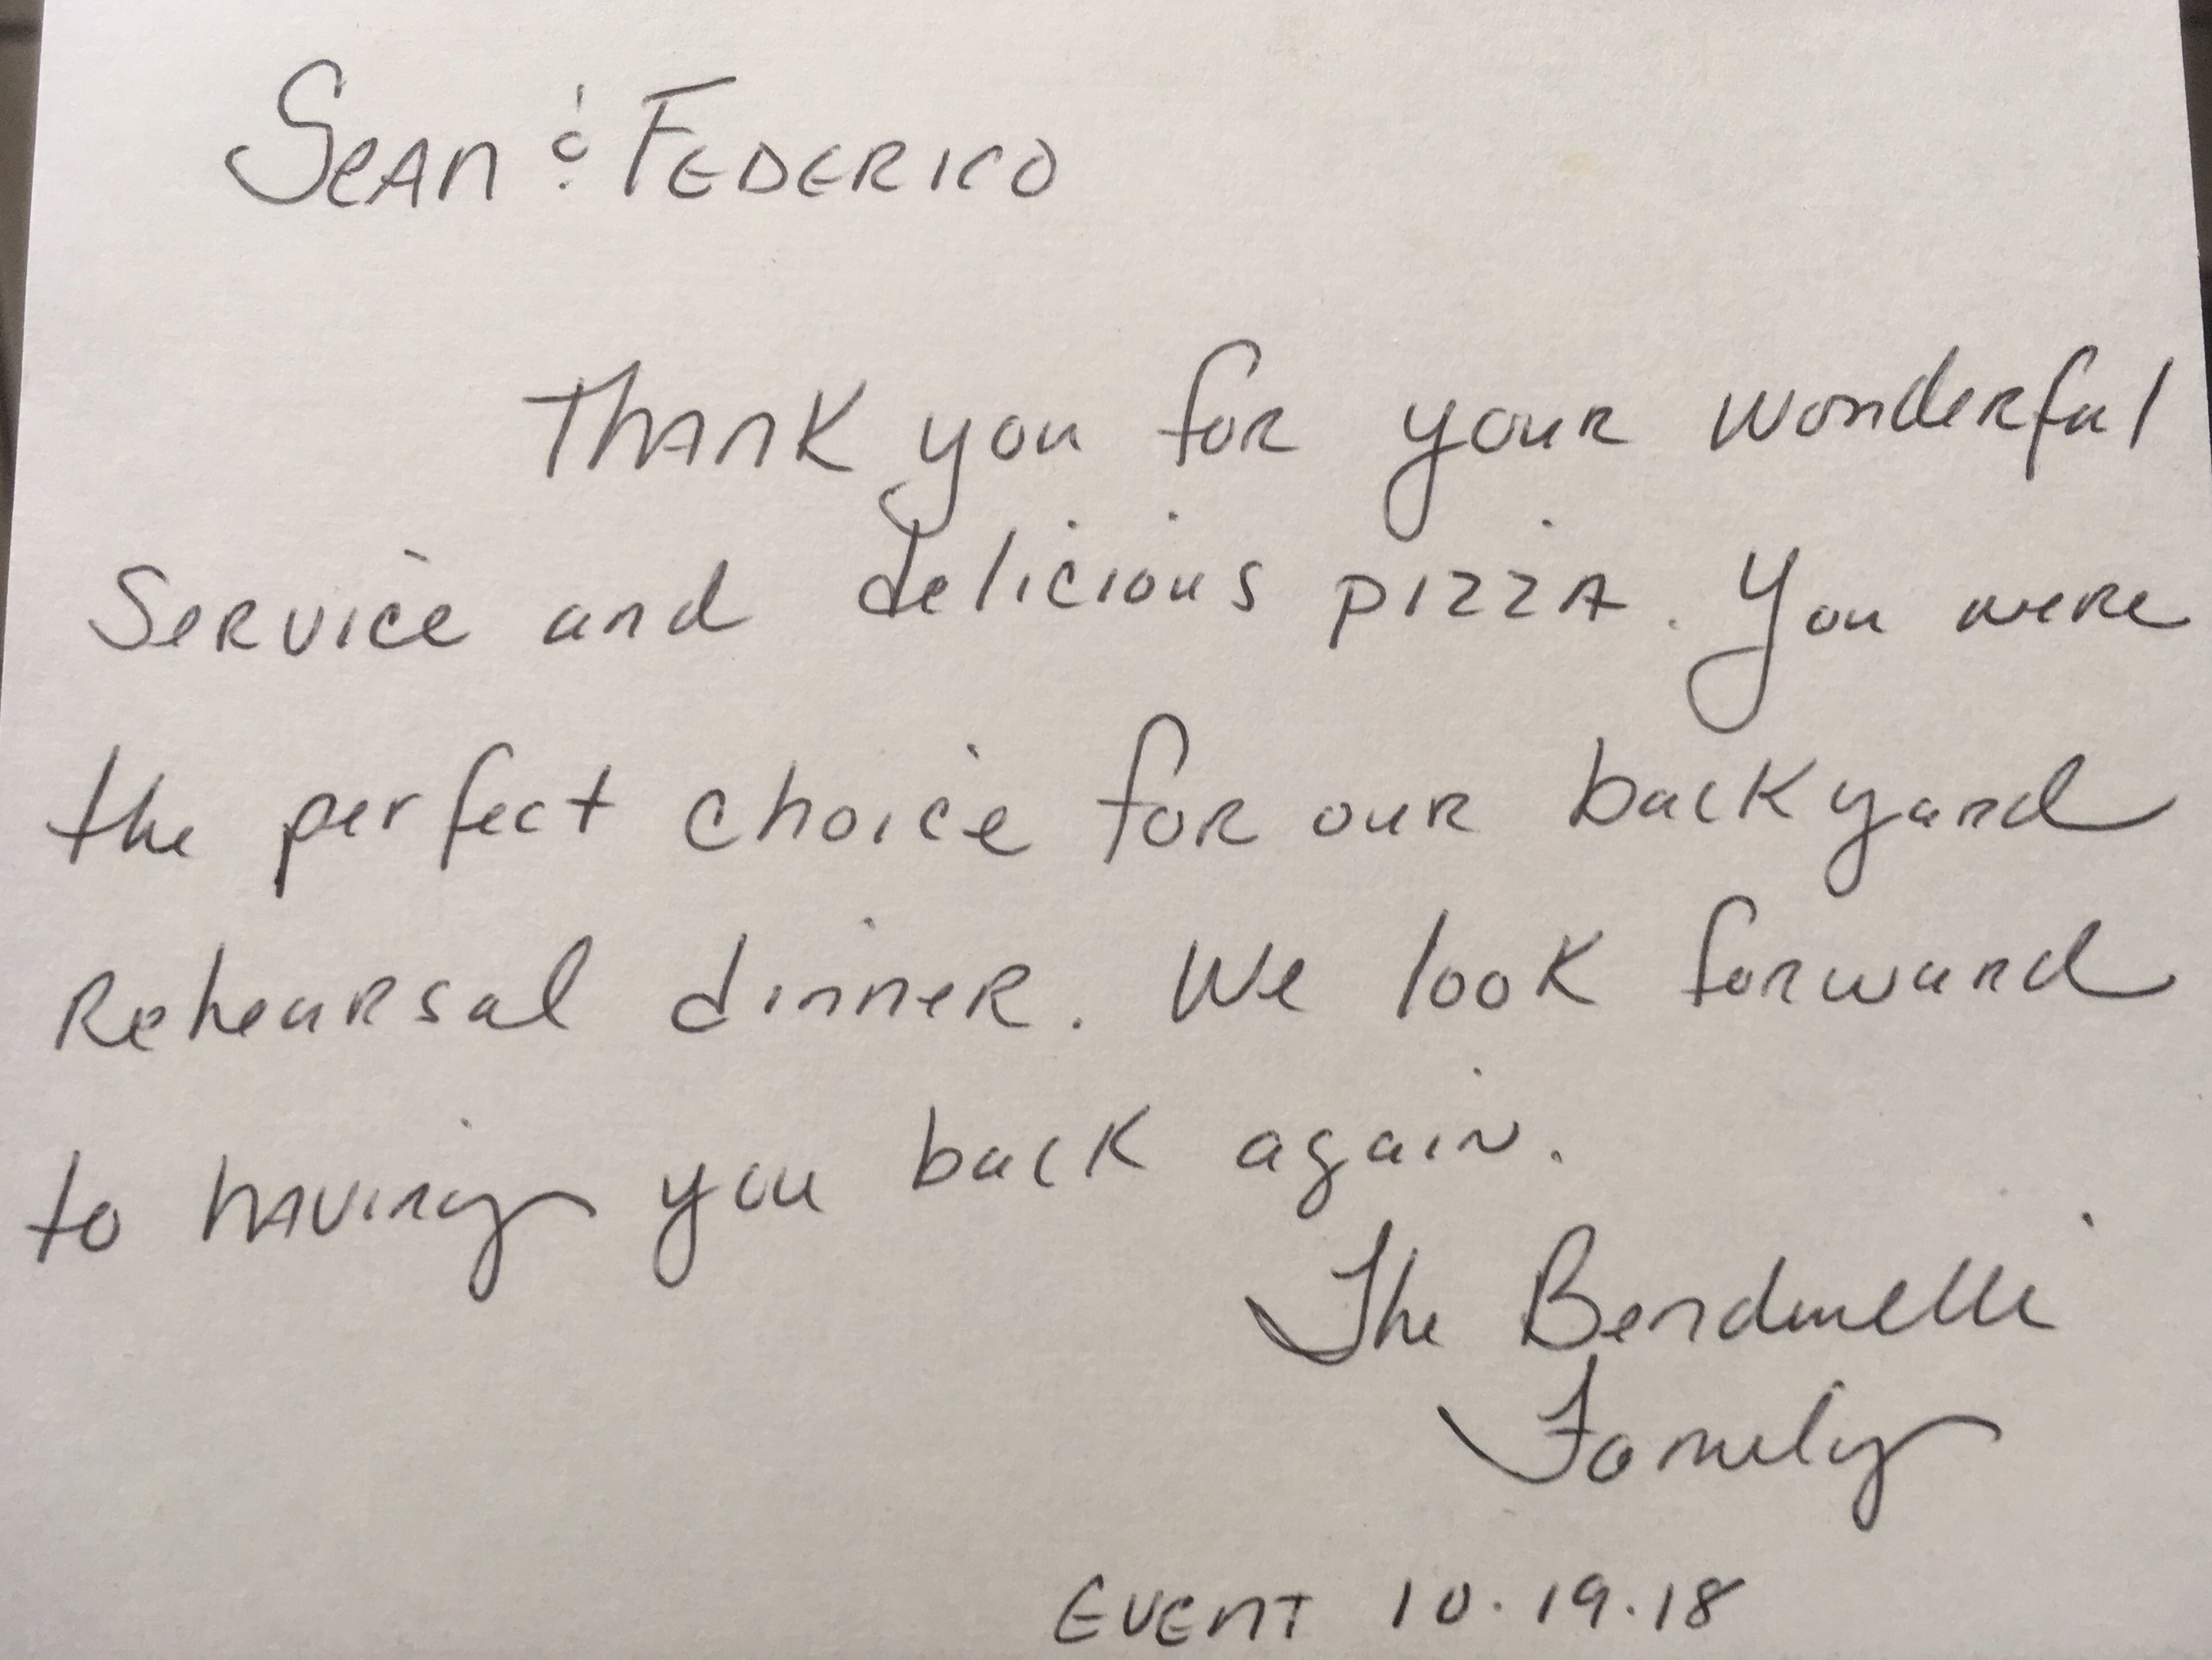 Sean & Federico
Thank you for your wonderful
Service and delicious pizza. You were
the perfect choice for our backyard
Rehearsal dinner. We look forward
to having you back again.
The Bendinelli
Family
Event 10.19.18